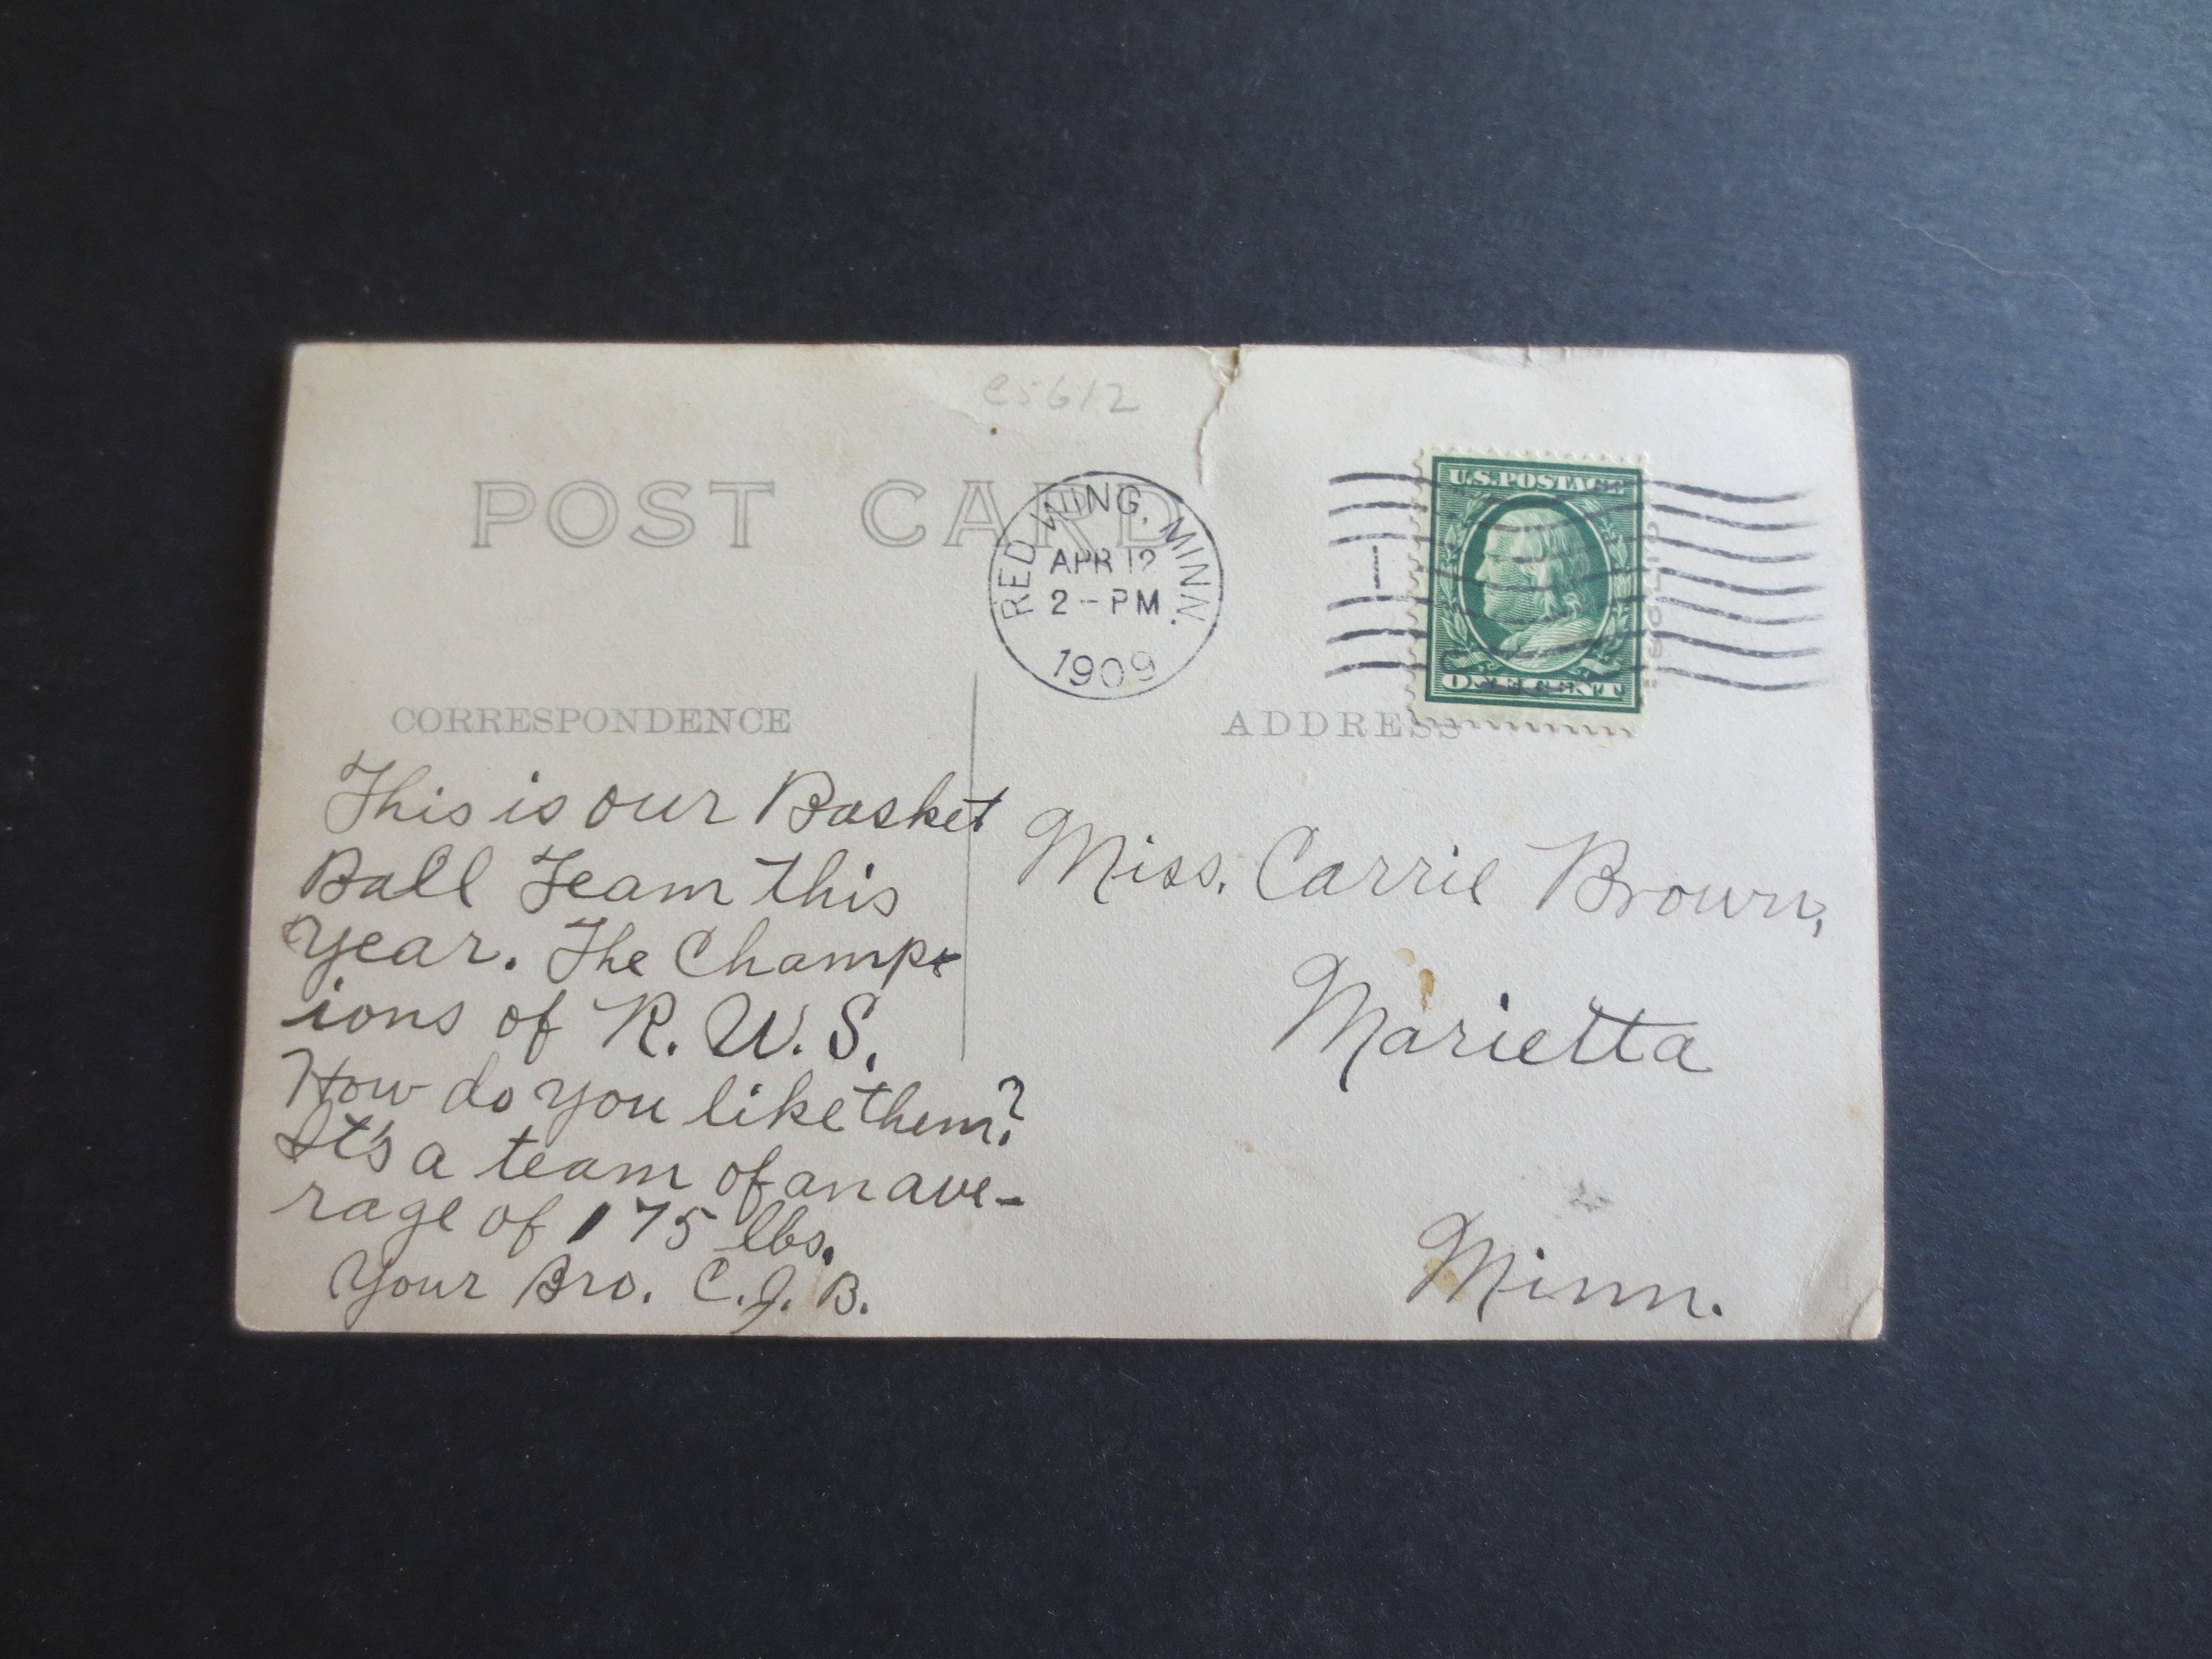 e5612
POST CARD
RED WING, MINN.
APR 12
2-PM
1909
1
U.S. POSTAGE
ONE CENT
CORRESPONDENCE
ADDRESS
This is our Basket
Ball Team this
Year. The Champ-
ions of R. W. S.
How do you like them?
It's a team of an ave-
rage of 175 lbs.
Your Bro. C. J. B.
Miss. Carrie Brown,
Marietta
Minn.